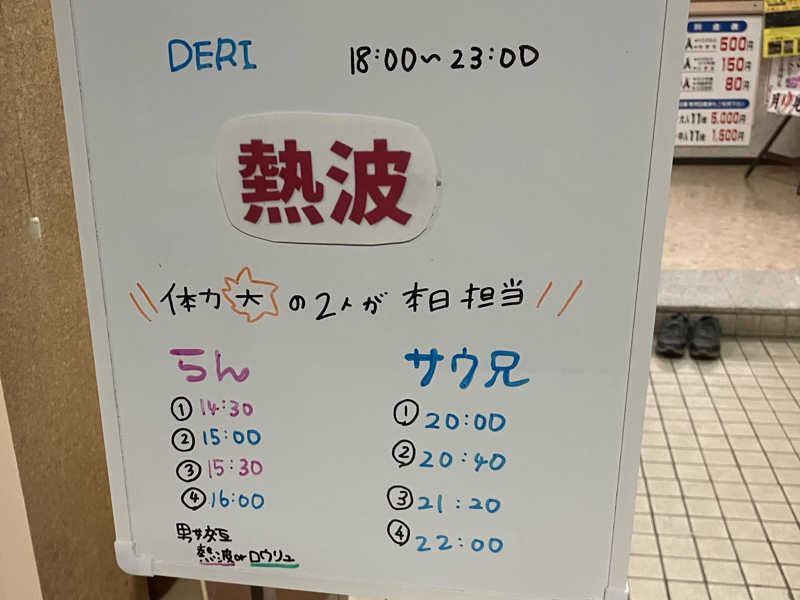 DERI 18:00~23:00
熱波
\\体力大の2人が本日担当//
らん
①14:30
②15:00
③15:30
④16:00
男女交互
熱波orロウリュ
サウ兄
①20:00
②20:40
③21:20
④22:00
500円
150円
80円
大人11枚 5,000円
中人11枚 1,500円